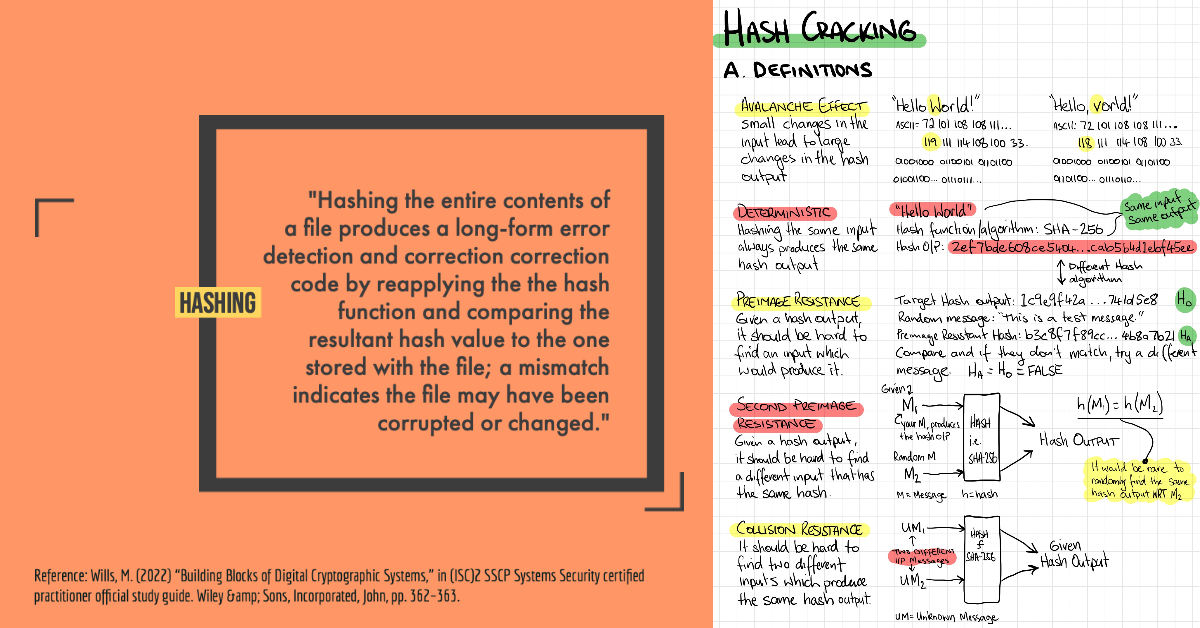 "Hashing the entire contents of
a file produces a long-form error
detection and correction correction
code by reapplying the the hash
function and comparing the
resultant hash value to the one
stored with the file; a mismatch
indicates the file may have been
corrupted or changed."
HASHING
Reference: Wills, M. (2022) “Building Blocks of Digital Cryptographic Systems,” in (ISC)2 SSCP Systems Security certified
practitioner official study guide. Wiley &amp; Sons, Incorporated, John, pp. 362–363.
HASH CRACKING
A. DEFINITIONS
AVALANCHE EFFECT
small changes in the
input lead to large
changes in the hash
output
"Hello World!"
ASCII: 72 101 108 108 111...
119 111 114 108 100 33.
01001000 01100101 01101100
01101100... 01110111...
"Hello, vorld!"
ASCII: 72 101 108 108 111...
118 111 114 108 100 33.
01001000 01100101 01101100
01101100... 01110110...
DETERMINISTIC
Hashing the same input
always produces the same
hash output
"Hello World"
Hash function/algorithm: SHA-256
Hash O/P: 2ef7bde608ce5404...cab5b4d1ebf45ee
same input
same output
Different Hash
algorithm
PREIMAGE RESISTANCE
Given a hash output,
it should be hard to
find an input which
would produce it.
Target Hash output: 1c9e9f42a...741d5e8 H₀
Random message: "This is a test message."
Preimage Resistant Hash: b3c8f7f89cc...4b8a7b21 Hₐ
Compare and if they don't match, try a different
message. Hₐ = H₀ = FALSE
SECOND PREIMAGE
RESISTANCE
Given a hash output,
it should be hard to find
a different input that has
the same hash.
Given 2
M₁
your M, produces
the hash O/P
Random M
M₂
M = Message h=hash
HASH
i.e.
SHA-256
Hash OUTPUT
h(M₁) = h(M₂)
It would be rare to
randomly find the same
hash output WRT M₂
COLLISION RESISTANCE
It should be hard to
find two different
inputs which produce
the same hash output.
UM₁
TWO DIFFERENT
I/P Messages
UM₂
UM = Unknown Message
HASH
SHA-256
Given
Hash Output